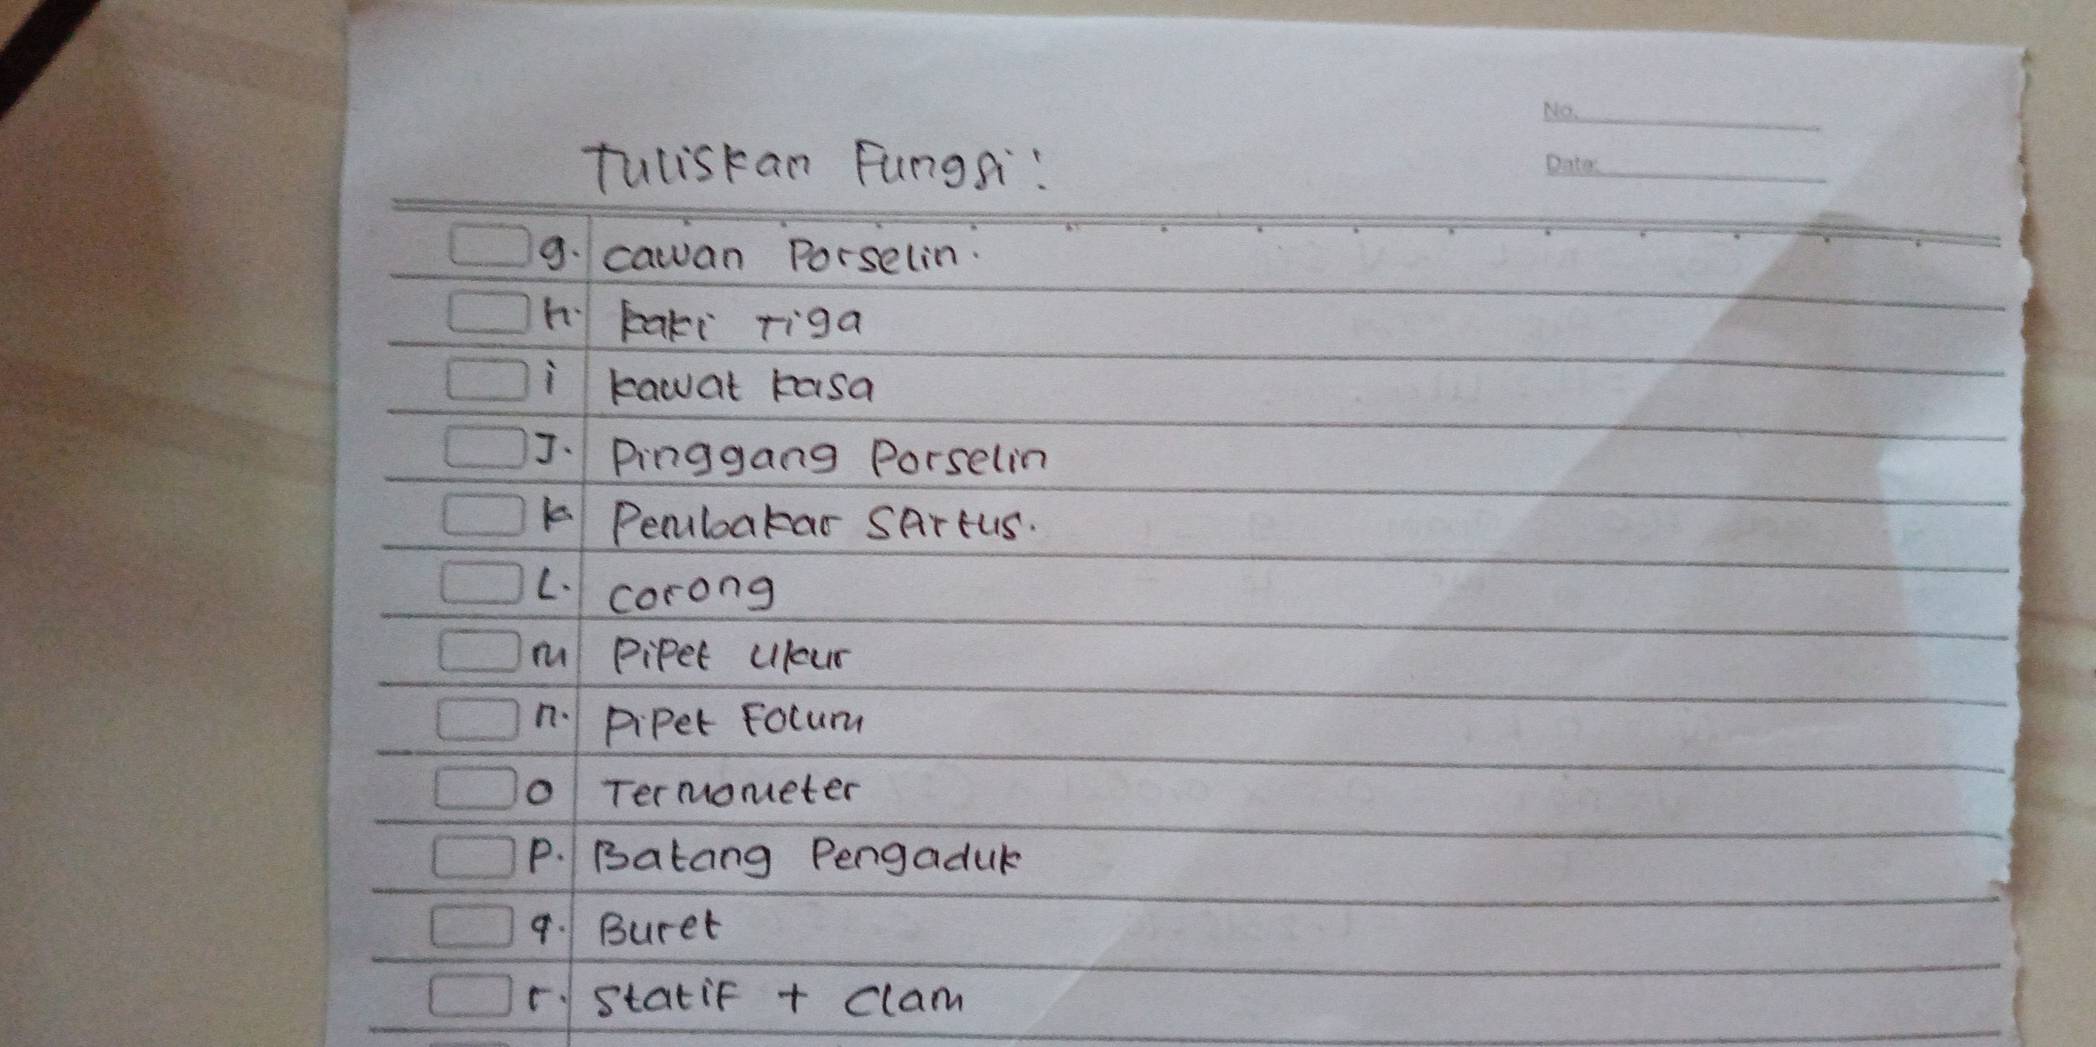 No.
Date:
Tuliskan Fungsi:
g. cawan Porselin.
h. kaki Tiga
i kawat kasa
J. Pinggang Porselin
k. Pembakar SArtus.
L. corong
m Pipet Ukur
n. Pipet Folum
o Termometer
P. Batang Pengaduk
q. Buret
r. Statif + Clam